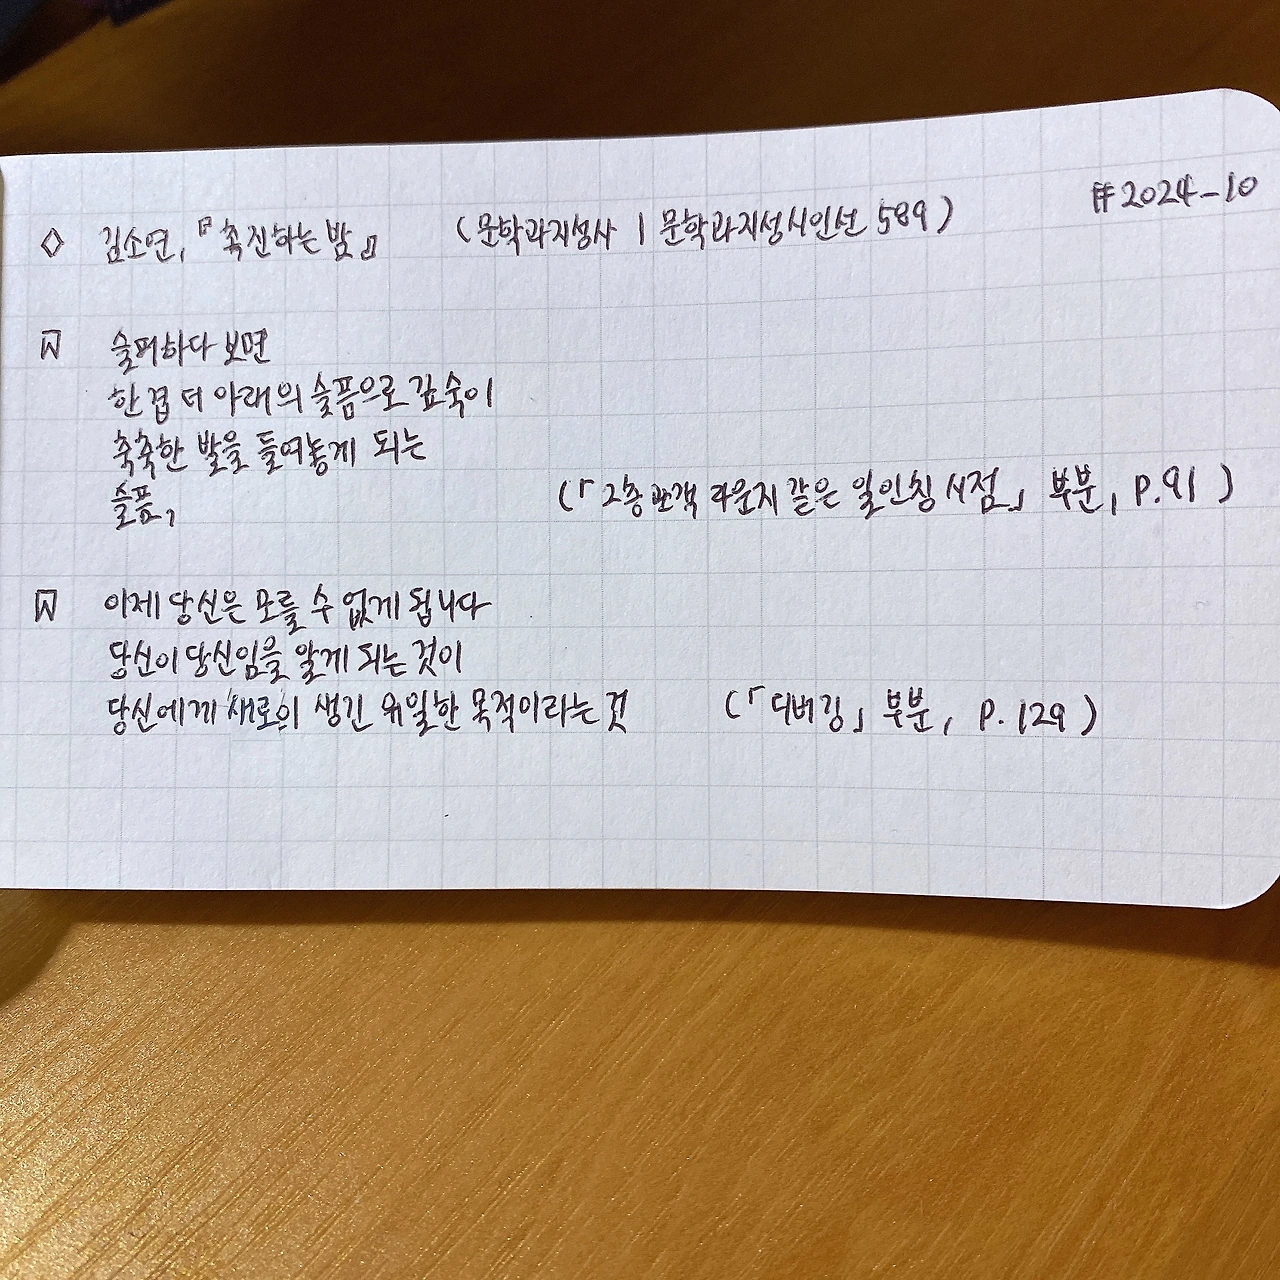 #2024-10
◇ 김소연, 『촉진하는 밤』 (문학과지성사 | 문학과지성시인선 589)
슬퍼하다 보면
한 겹 더 아래의 슬픔으로 깊숙이
축축한 발을 들여놓게 되는
슬픔, (「2층 관객 라운지 같은 일인칭 시점」 부분, p.91)
이제 당신은 모를 수 없게 됩니다
당신이 당신임을 알게 되는 것이
당신에게 새로이 생긴 유일한 목적이라는 것 (「디버깅」 부분, p.129)